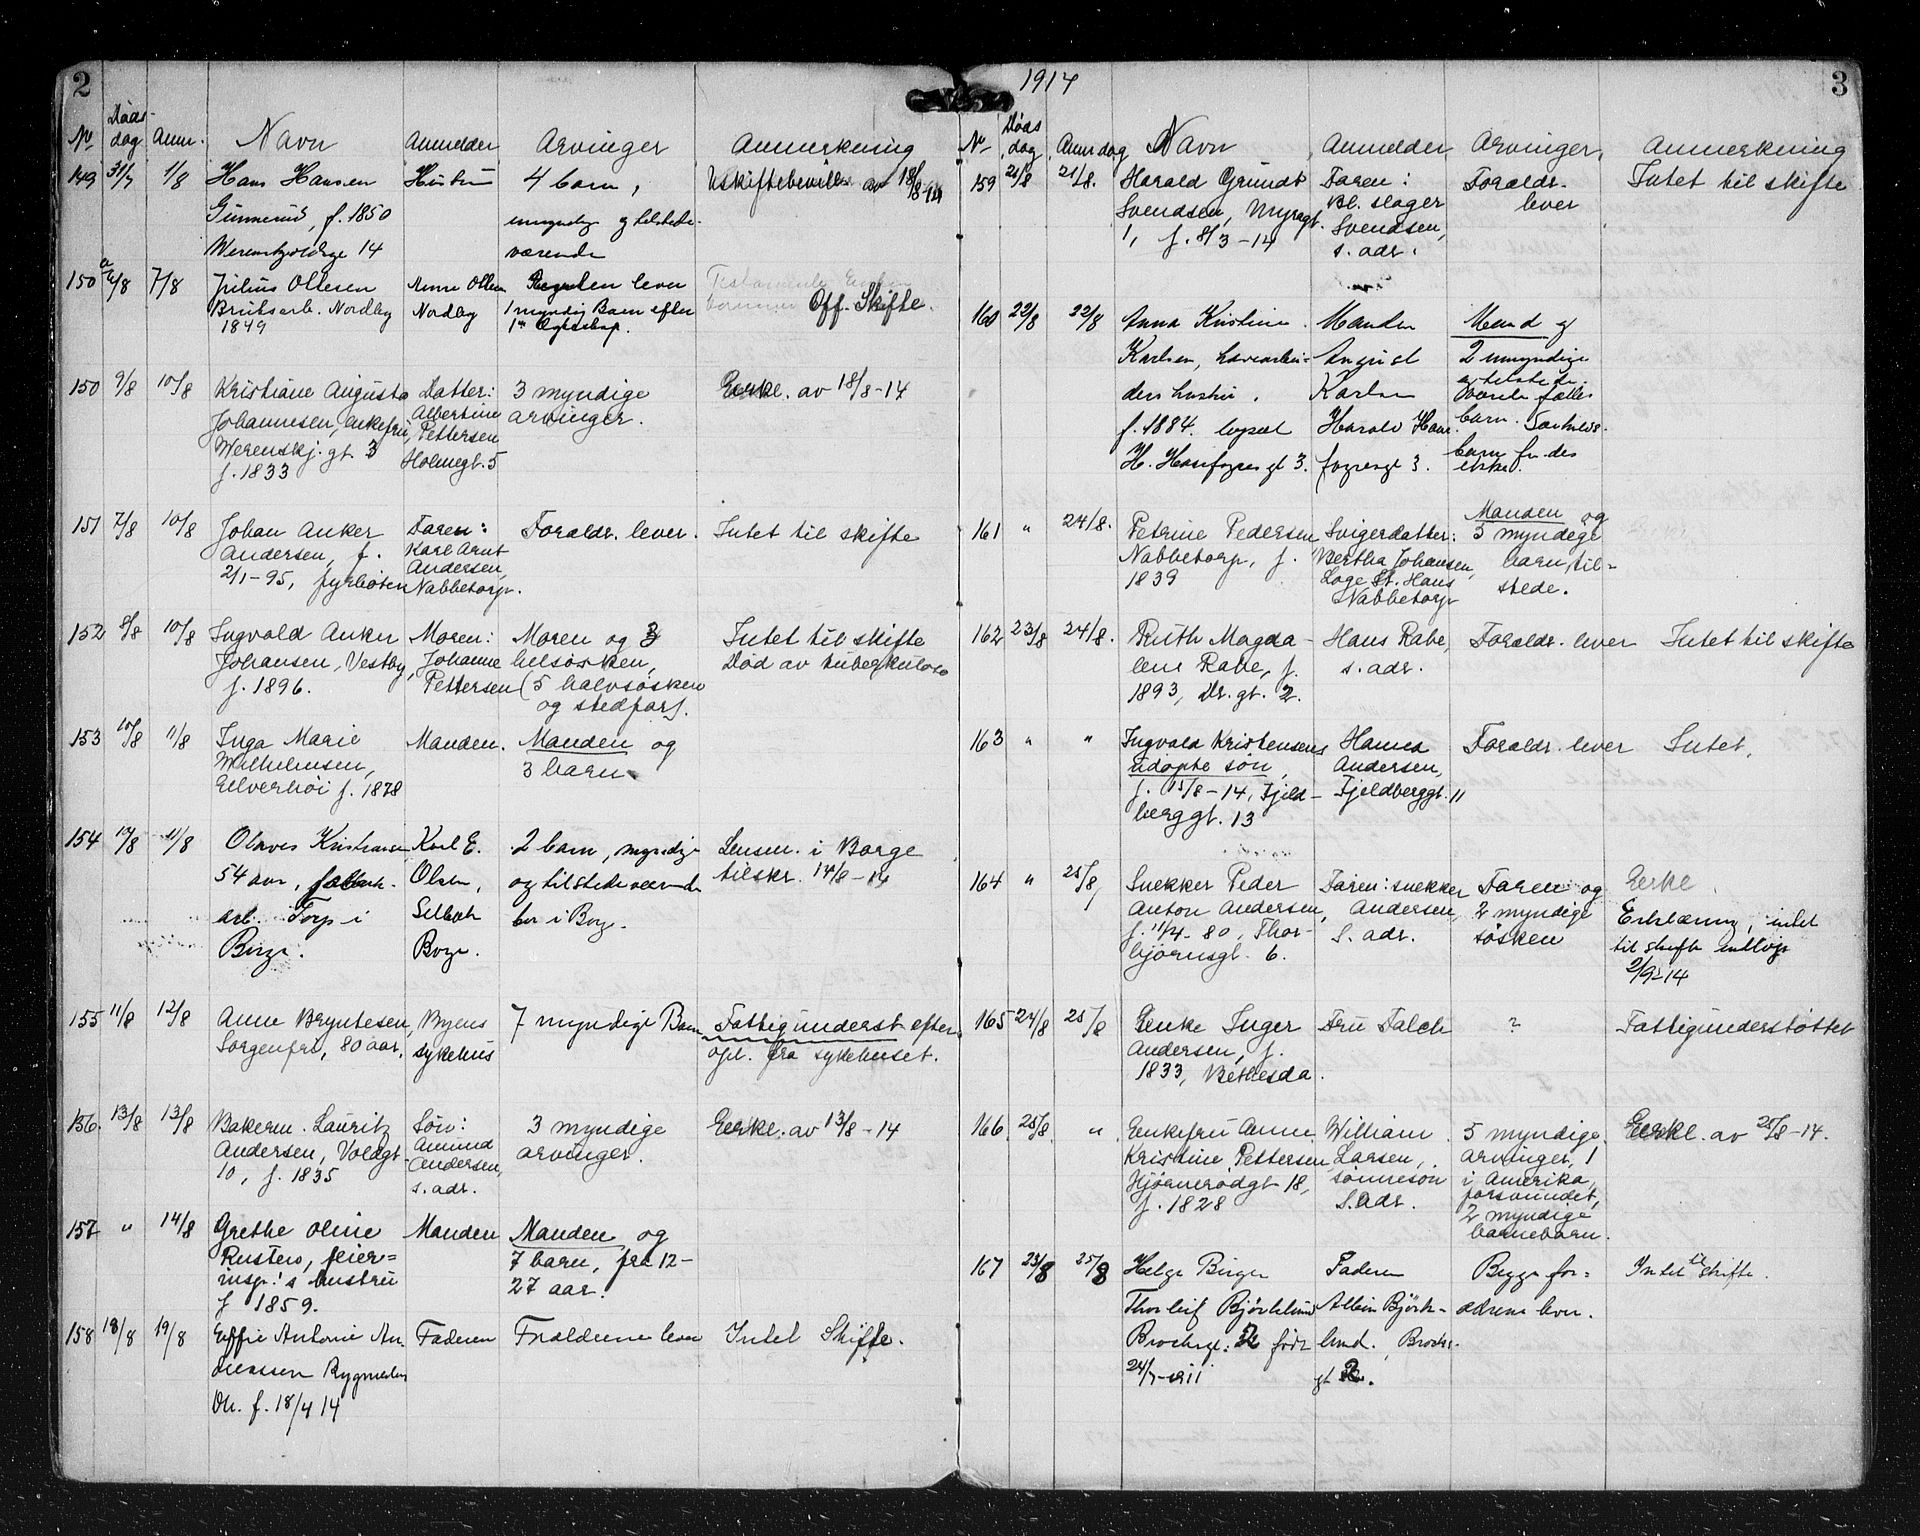 2
Døds-
No dag Anm. Navn Anmelder Arvinger Anmerkning
149 31/7 1/8 Hans Hansen Hustru 4 barn, Uskiftebevill. av 18/8-14
Gunnerud, f. 1850 umyndig og tilstede-
14 værende
150a 6/8 7/8 Julius Ollesen Anne Ollesen lever Off. Skifte.
Bruksarb. Nordby Nordby 1 myndig Barn efter
1849 1ste Ægteskap.
150 9/8 10/8 Kristiane Augusta Datter: 3 myndige Eerkl. av 18/8-14
Johannesen, enkefru, Albertine arvinger.
Werenskj. gt. 3 Pettersen
f. 1833 Holmegt. 5
151 7/8 10/8 Johan Anker Faren: Foraldr. lever. Intet til skifte
Andersen, f. Karl Arnt
2/1-95, fyrbøter Andersen,
Nabbetorp.
152 8/8 10/8 Ingvald Anker Moren: Moren og 3 Intet til skifte
Johansen, Vestby, Johanne helsøsken, Død av tuberkulose
f. 1896. Pettersen (5 halvsøsken
og stedfar).
153 10/8 11/8 Inga Marie Manden. Manden og
Wilhelmsen, 3 barn
Elverhøi f. 1878
154 10/8 11/8 Olaves Kristiansen Karl E. 2 barn, myndige Lensm. i Borge
54 aar, fabrik- Olsen, og tilstedeværende tilskr. 14/8-14
arb. Torp i Selbak bor i Borge.
Borge. Borge.
155 11/8 12/8 Anne Bryntesen, Byens 7 myndige Barn Fattigunderst. efter
Sorgenfri, 80 aar, sykehus opl. fra sykehuset.
156. 13/8 13/8 Bakerm. Lauritz Søn: 3 myndige Eerkl. av 13/8-14
Andersen, Voldgt. Amund arvinger.
10, f. 1835 Andersen,
s. adr.
157 " 14/8 Grethe Oline Manden Manden og
Rusten, feier= 7 barn, fra 12-
insp.'s hustru 27 aar.
f 1859.
158 18/8 19/8 Effie Antonie An- Faderen Foraldrene lever Intet Skifte.
dreassen
f. 18/4 14
1914
3
No Døds dag Anm dag Navn Anmelder Arvinger. Anmerkning
159 21/8 21/8. Harald Grundt Faren: Foraldr. Intet til skifte
Svendsen, Myragt. Bl. slager lever
1, f. 8/3-14 Svendsen,
s. adr.
160 22/8 22/8 Anna Kristine Manden Mand og
Karlsen, havearbei- August 2 umyndige
ders hustru. Karlsen og tilstede-
værende fælles
f. 1884. Harald Haar- barn. Særkulds-
H. Haarfagres gt 3. fagresgt 3. barn fin des
ikke.
161 " 24/8. Petrine Pedersen Svigerdatter: Manden og
Nabbetorp, f. Bertha Johansen, 5 myndige
1839 Loge St. Hans barn, til-
Nabbetorp stede.
162 23/8 24/8. Ruth Magda- Hans Rabe, Foraldr. lever Intet til skifte
lene Rabe, f. s. adr.
1893, Dr. gt. 2.
163 " " Ingvald Kristensens Hanna Foraldr. lever Intet.
udøpte søn, Andersen,
f. 15/8-14, Fjeld- Fjeldberggt. 11
berggt. 13
164 " 25/8, Snekker Peder Faren: snekker Faren og Eerkl.
Anton Andersen, Andersen, 2 myndige Erklæring, intet
f. 11/4-80, Thor- s. adr. søsken til skifte
bjørnsgt. 6. 2/9-14
165 24/8 25/8 Enke Inger Fru Falch ? Fattigunderstøttet
Andersen, f.
1833, Bethesda.
166 25/8. " Enkefru Anne William 5 myndige Eerkl. av 25/8-14.
Kristine Pettersen, Larsen, arvinger, 1
Hjørnerødgt 18, sønnesøn i Amerika,
f. 1828 s. adr. forsvundet,
2 myndige
barnebarn.
167 23/8 25/8 Helge Birger Faderen Begge for= Intet til skifte.
Thorleif Bjørklund Albin Bjørk- ældrene lever.
Brochsgt. 2 født lund, Brochs-
24/7-1911 gt 2.